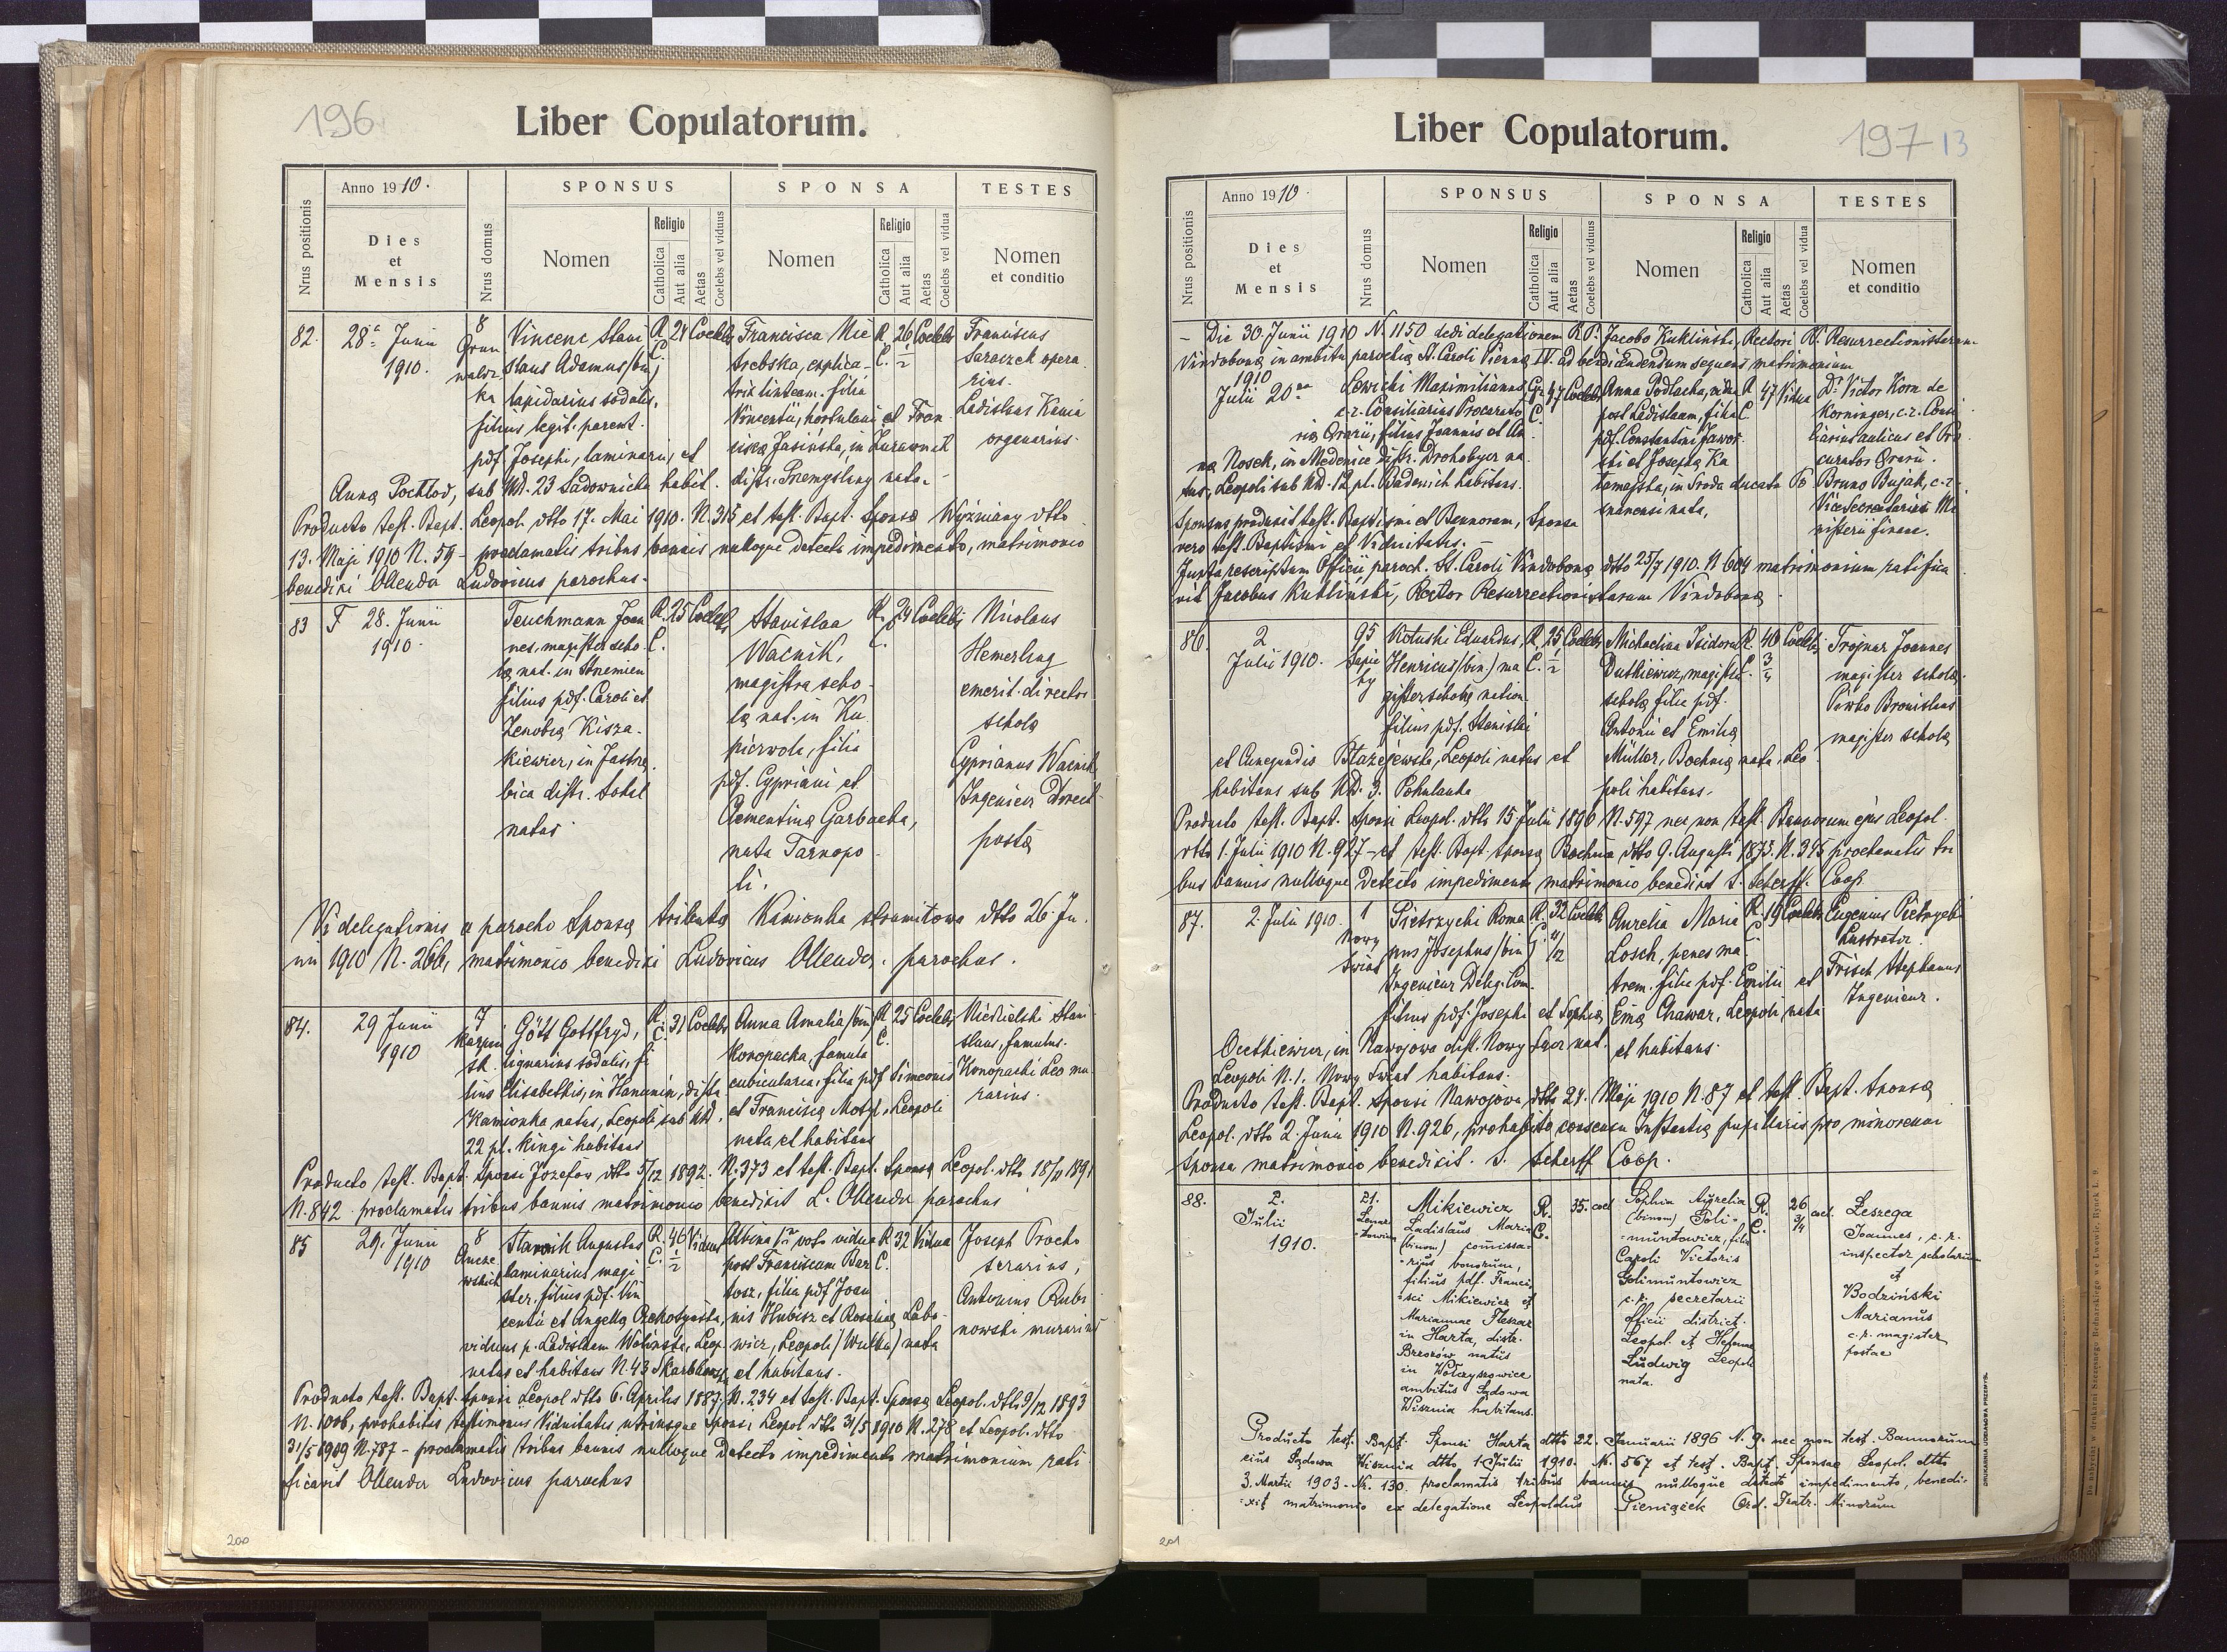 196
Liber Copulatorum.
Nrus positionis
Anno 1910.
Dies
et
Mensis
Nrus domus
SPONSUS
Nomen
Religio
Catholica
Aut alia
Aetas
Coelebs vel viduus
SPONSA
Nomen
Religio
Catholica
Aut alia
Aetas
Coelebs vel vidua
TESTES
Nomen
et conditio
82.
28ª Junii
1910.
8
Grun
waldz
ka
Vincenc Stani
slaus Adamus (bin)
lapidarius sodalis,
filius legit. parent.
pdf. Josephi, laminarii, et
Anna Pochłod, sub ND. 23 Sadownicka habit.
R. C.
24
Coelebs
Francisca Nie
trebska, explica-
trix linteam. filia
Vincentii, hortulani et Fran
cisca Jasińska, in Żurawnik
distr. Przemyślany nata.
R. C.
26 1/2
Coelebs
Franciscus
opera
rius.
Ladislaus Kania
organarius.
Producto test. Bapt. Leopol. dtto 17. Mai 1910. N. 315 et test. Bapt. Sponsæ Wyżniany dtto
13. Maji 1910 N. 59 - proclamatis tribus bannis nulloque detecto impedimento, matrimonio
benedixi Ollender Ludovicus parochus.
83
F 28. Junii
1910.
Teuchmann Joan
nes, magister scho-
læ nat. in Strzemien
filius pdf. Caroli et
Zenobiæ Kisza-
kiewicz, in Jastrzę
bica distr. Sokal
natus
R. C.
25
Coelebs
Stanislaa
Wacnik,
magistra scho-
læ nat. in Ku
pierwola, filia
pdf. Cypriani et
Clementinæ Garbacka,
nata Tarnopo
li.
R. C.
24
Coelebs
Nicolaus
Hemerling
emerit. director
scholæ
Cyprianus Wacnik
Ingenieur Direct.
postæ
Vi delegationis a parocho Sponsæ tributæ Kamionka strumiłowa dtto 26 Ju
nii 1910 N. 266, matrimonio benedixi Ludovicus Ollender. parochus.
84.
29 Junii
1910
7
Kazimi
sk.
Gött Gottfryd,
lignarius sodalis, fi
lius Elisabethis, in Hanunin, distr.
Kamionka natus, Leopoli sub ND.
22 pl. Kingi habitans
R. C.
31
Coelebs
Anna Amalia (bin)
Konopacka, famula
cubicularia, filia pdf Simeonis
et Francisca Motyl, Leopoli
nata et habitans
R. C.
25
Coelebs
Niedzielski Stani
slaus, famulus.
Konopacki Leo mu
rarius.
Producto test. Bapt. Sponsi Józefów dtto 5/12 1892. N. 373 et test. Bapt. Sponsæ Leopol. dtto 18/11 1891
N. 842 proclamatis tribus bannis matrimonio benedixit L. Ollender parochus
85
29. Junii
1910
8
Stawnik Augustus
laminarius magi
ster, filius pdf. Vin
centii et Angela
viduus p. Ladislaam Wolińska, Leop.
natus et habitans N. 43
R. C.
46 1/2
Viduus
Albina 1º voto vidua
post Franciscum Bar
tosz, filia pdf Joan
nis Hubisz et Rosaliæ Łabo-
wicz, Leopoli (Wulka) nata
et habitans.
R. C.
32
Vidua
Joseph Procko
serarius,
Antonius Rubi
nowski murarius
Producto test. Bapt. Sponsi Leopol dtto 6. Aprilis 1887, N. 234 et test. Bapt. Sponsæ Leopol. dtto 9/12 1893
N. 1006, prohabitis testimoniis Viduitatis utriusque Sponsi Leopol dtto 31/5 1910 N. 278 et Leopol. dtto
31/5 1909 N. 787 - proclamatis tribus bannis nulloque detecto impedimento matrimonium rati
ficavit Ollender Ludovicus parochus
200
Liber Copulatorum.
197 13
Nrus positionis
Anno 1910.
Dies
et
Mensis
Nrus domus
SPONSUS
Nomen
Religio
Catholica
Aut alia
Aetas
Coelebs vel viduus
SPONSA
Nomen
Religio
Catholica
Aut alia
Aetas
Coelebs vel vidua
TESTES
Nomen
et conditio
- Die 30. Junii 1910 N. 1150 dedi delegationem R. P. Jacobo Kukliński, Rectori R. Resurrectionistarum
Vindobonæ in ambitu parochiæ St. Caroli Viennæ IV. ad benedicendum sequens matrimonium
1910
Julii 20
Lewicki Maximilianus
c.r. Consiliarius Procurato
riæ Ærarii, filius Joannis et An
næ Nosek, in Medenice distr. Drohobycz na
tus, Leopoli sub ND. 12 pl. Badenich habitans.
Gr. C.
47
Coelebs
Anna Podlacka, vidua
post Ladislaum, filia
pdf. Constantini Jawor
ski et Josephæ Ka
tamajska, in Środa ducatu Po
snanensi nata,
R. C.
47
Vidua
Dr Victor Korn de
Korninger, c.r. Consi
liarius aulicus et Pro
curator Ærarii.
Bruno Bujak, c.r.
Vice Secretarius Mi
nisterii financ.
Sponsus produxit test. Baptismi et Bannorum, Sponsa
vero test. Baptismi et Viduitatis. -
Juxta rescriptum Officii paroch. St. Caroli Vindobonæ dtto 25/7 1910. N 604 matrimonium ratifica
vit Jacobus Kukliński, Rector Resurrectionistarum Vindobonæ.
86.
2
Julii 1910.
95
Sapie
hy
Kotuski Eduardus,
Henricus (bin.) ma
gister scholæ nation.
filius pdf. Stanislai
et Cunegundis Błażejewska, Leopoli natus et
habitans sub ND. 3. Pohulanka
R. C.
25 1/2
Coelebs
Michaelina Isidora
Dutkiewicz, magistra
scholæ filia pdf.
Antonii et Emiliæ
Müller, Bochniæ nata, Leo
poli habitans.
R. C.
40 3/4
Coelebs
Trojnar Joannes
magister scholæ.
Piwko Bronislaus
magister scholæ
Producto test. Bapt. Sponsi Leopol. dtto 15 Julii 1896 N. 597 nec non test. Bannorum ejus Leopol.
dtto 1. Julii 1910 N. 927 - et test. Bapt. Sponsæ Bochnia dtto 9. Augusti 1873. N. 345 proclamatis tri
bus bannis nulloque detecto impedimento matrimonio benedixit S. Scherff. Coop.
87.
2 Julii 1910.
1
Nowy
świat
Pietrzycki Roma
nus Josephus (bin)
Ingenieur Deleg. Com.
filius pdf. Josephi et Sophiæ
in Nawojowa dist. Nowy Sącz nat.
Leopoli N. 1. Nowy Świat habitans.
R. C.
32 11/12
Coelebs
Aurelia Maria
Losch, penes ma
trem. filia pdf. Emilii et
Emæ Chawar, Leopoli nata
et habitans.
R. C.
19
Coelebs
Eugenius Pietrzycki
Lustrator.
Frisch Stephanus
Ingenieur.
Producto test. Bapt. Sponsi Nawojowa dtto 24. Maji 1910 N. 87 et test. Bapt. Sponsæ
Leopol. dtto 2. Junii 1910 N. 926, prohabito consensu Instantiæ pupillaris pro minorenni
Sponsa matrimonio benedixit. S. Scherff Coop.
88.
2.
Julii
1910.
21.
Mikiewicz
Ladislaus Maria
(binom) comissa-
-rius bonorum,
filius pdf. Franci-
-sci Mikiewicz et
Mariannae Fleszar
in Harta, distr.
Brzozów natus
in Wołczyszowice
ambitus Sądowa
Wisznia habitans.
R. C.
35.
coel
Sophia Aurelia
(binom) Goli-
-muntowicz, filia
Caroli Victoris
Golimuntowicz
c.k. secretarii
officii district.
Leopol. et Helenæ
Ludwig Leopoli
nata.
R. C.
26 3/4
coel.
Leszega
Joannes, c.k.
inspector scholarum
et
Bodziński
Marianus
c.k. magister
postae
Producto test. Bapt. Sponsi Harta dtto 22. Januarii 1896 N. 9. nec non test. Bannorum
eius Sądowa Wisznia dtto 1 Julii 1910. N. 567 et test. Bapt. Sponsae Leopol. dtto
3. Martii 1903 - Nr. 130. proclamatis tribus bannis nulloque detecto impedimento, benedi-
-xit matrimonio ex delegatione Leopoldus Pieniążek Ord. Fratr. Minorum
201
DRUKARNIA UDZIAŁOWA PRZEMYŚL
Do nabycia w drukarni Szczęsnego Bednarskiego we Lwowie, Rynek L. 9.